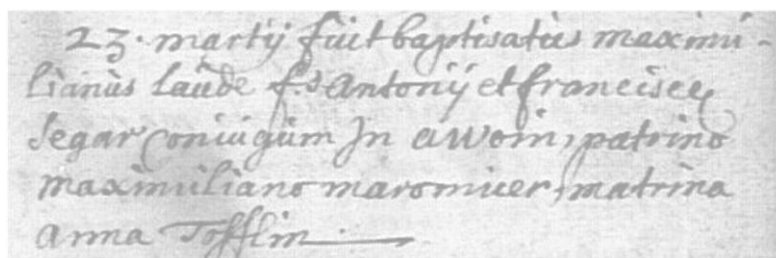 23. martij fuit baptisatus maximi-
lianus laude f.s Antonij et franciscę
segar Coniugum In awoin, patrino
maximiliano maromier, matrina
anna Tofflin